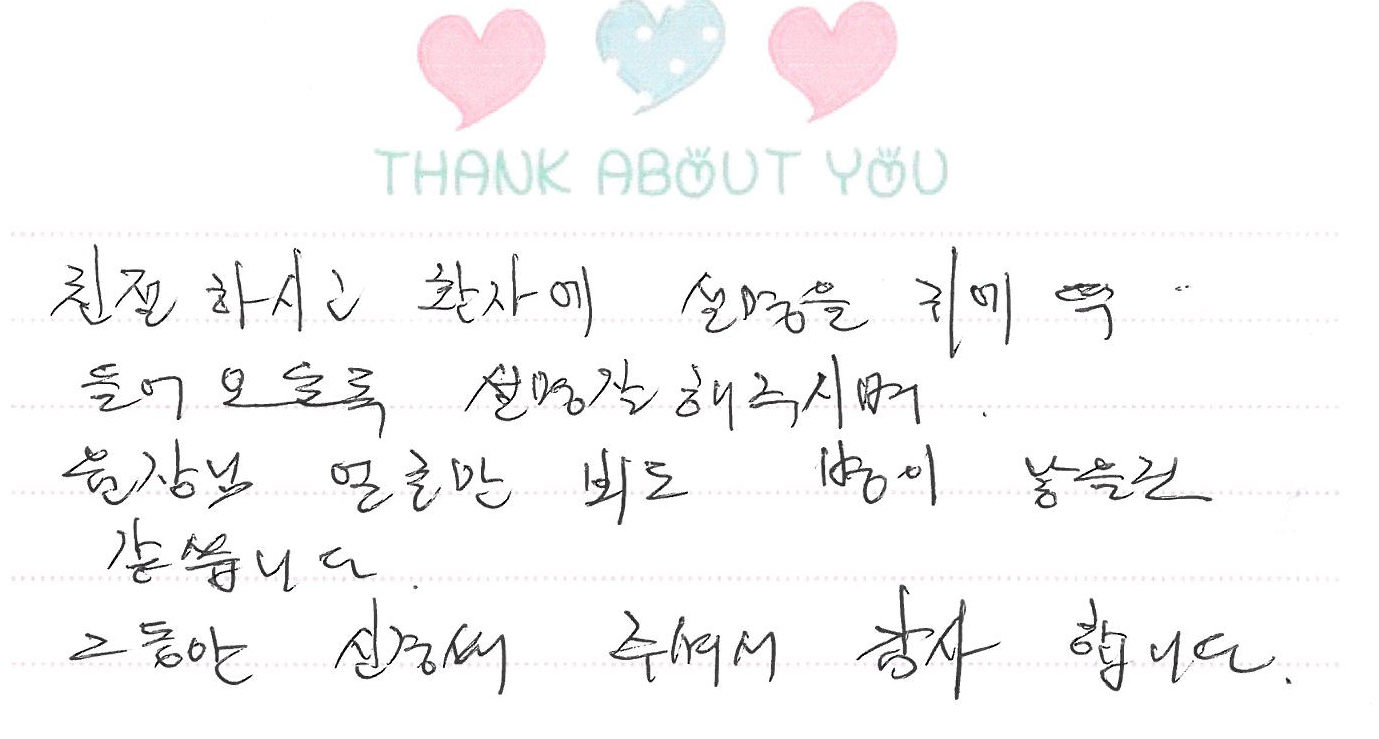 THANK ABOUT YOU
친절 하시고 환자에 설명을 귀에 딱..
들어 오도록 설명잘 해주시며.
원장님 얼굴만 봐도 병이 낳을것
같씁니다.
그동안 신경써 주셔서 감사 합니다.